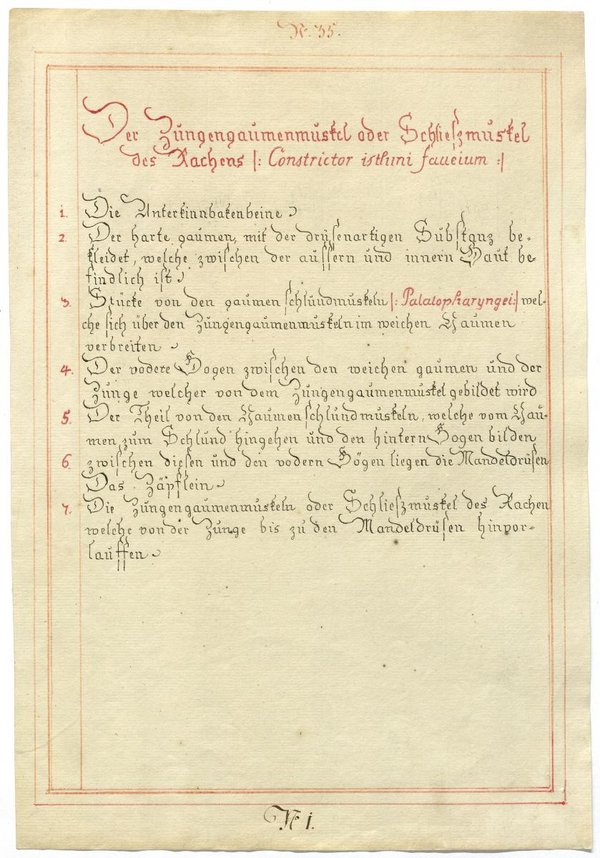 N. 35.
Der Zungengaumenmuskel oder Schlieszmuskel
des Rachens |: Constrictor isthmi faucium :|
1. Die Unterkinnbakenbeine
2. Der harte gaumen, mit der drüsenartigen Substanz be-
kleidet, welche zwischen der aussern und innern Haut be-
findlich ist
3. Stücke von den gaumenschlundmuskeln |: Palatopharyngei :| wel-
che sich über den Zungengaumenmuskeln im weichen Gaumen
verbreiten
4. Der vodere Bogen zwischen den weichen gaumen und der
Zunge welcher von dem Zungengaumenmuskel gebildet wird
5. Der Theil von den Gaumenschlundmuskeln, welche vom Gau-
men, zum Schlund hingehen und den hintern Bogen bilden
6. zwischen diesen und den vodern Bögen liegen die Mandeldrüsen
Das Zäpflein
7. Die Zungengaumenmuskeln oder Schlieszmuskel des Rachen
welche von der Zunge bis zu den Mandeldrüsen hinvor-
lauffen
N 1.